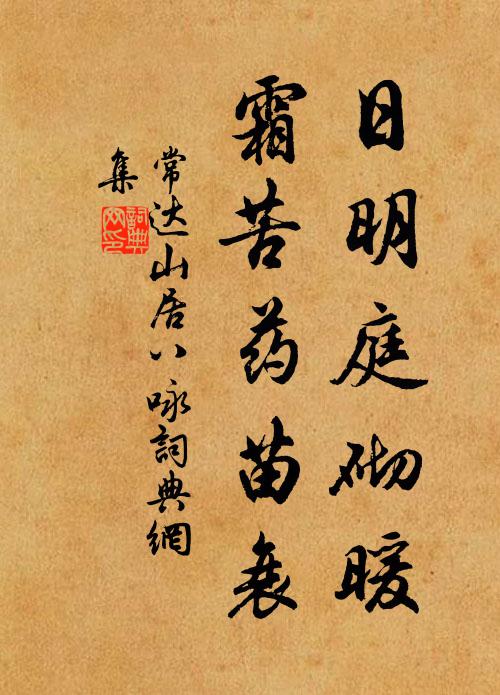 日明庭砌暖
霜苦药苗衰
常达山居八咏詞典網
集
詞典
网印